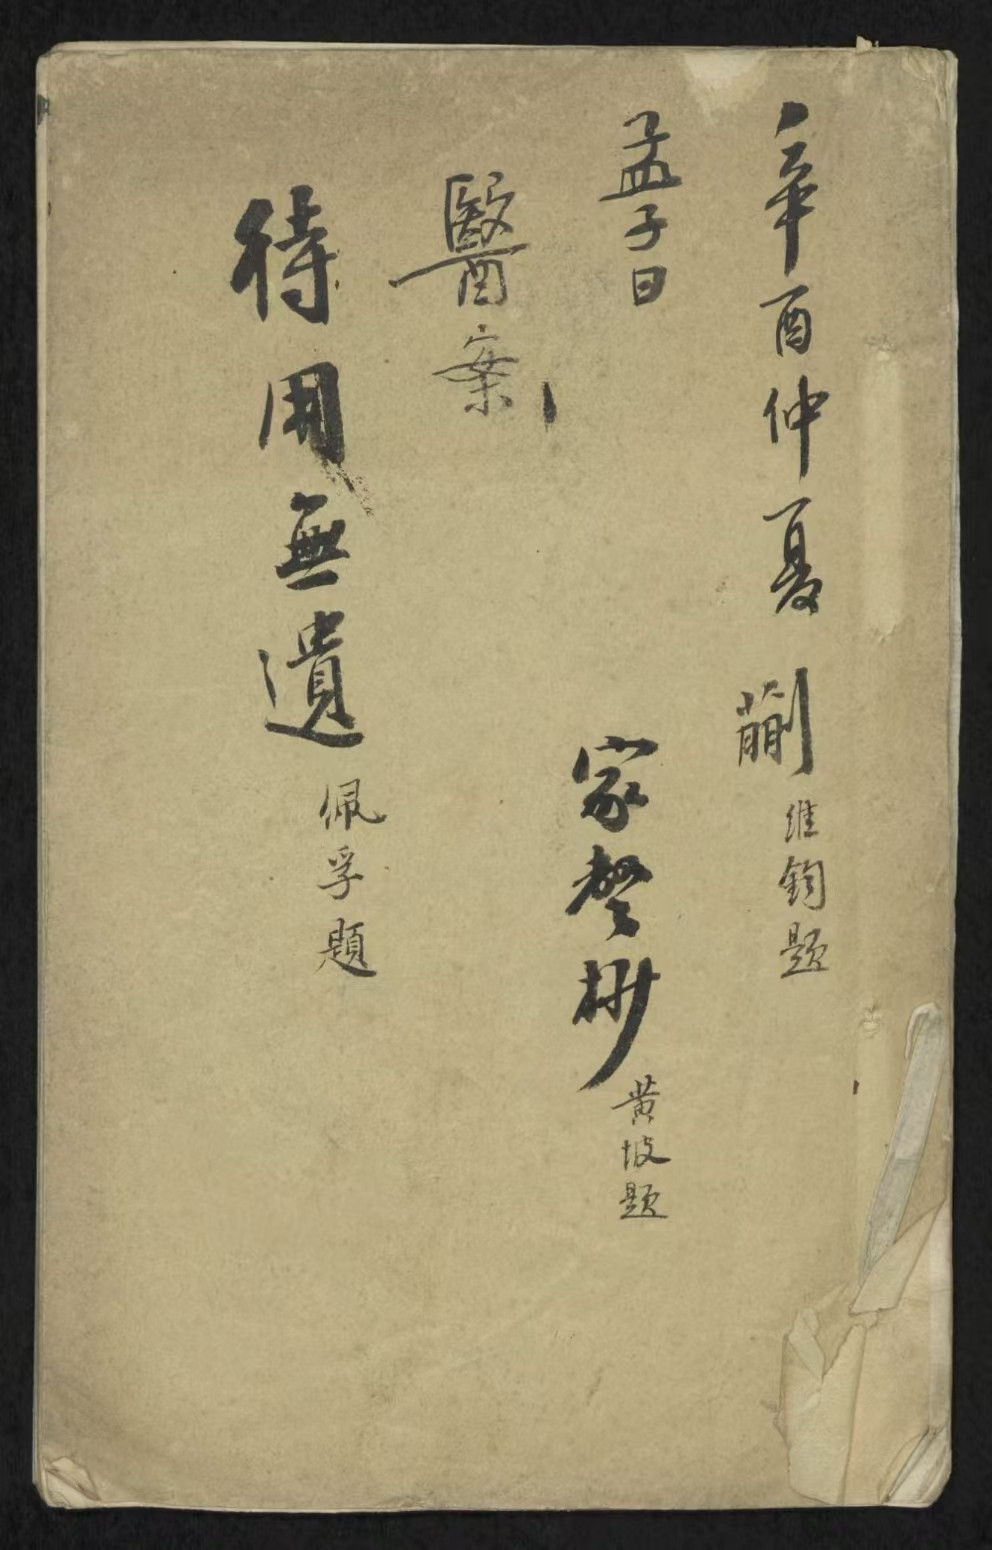 辛酉仲夏 蒯維鈞题
孟子曰
家聲抄 黄坡题
醫案
待用無遺 佩孚題